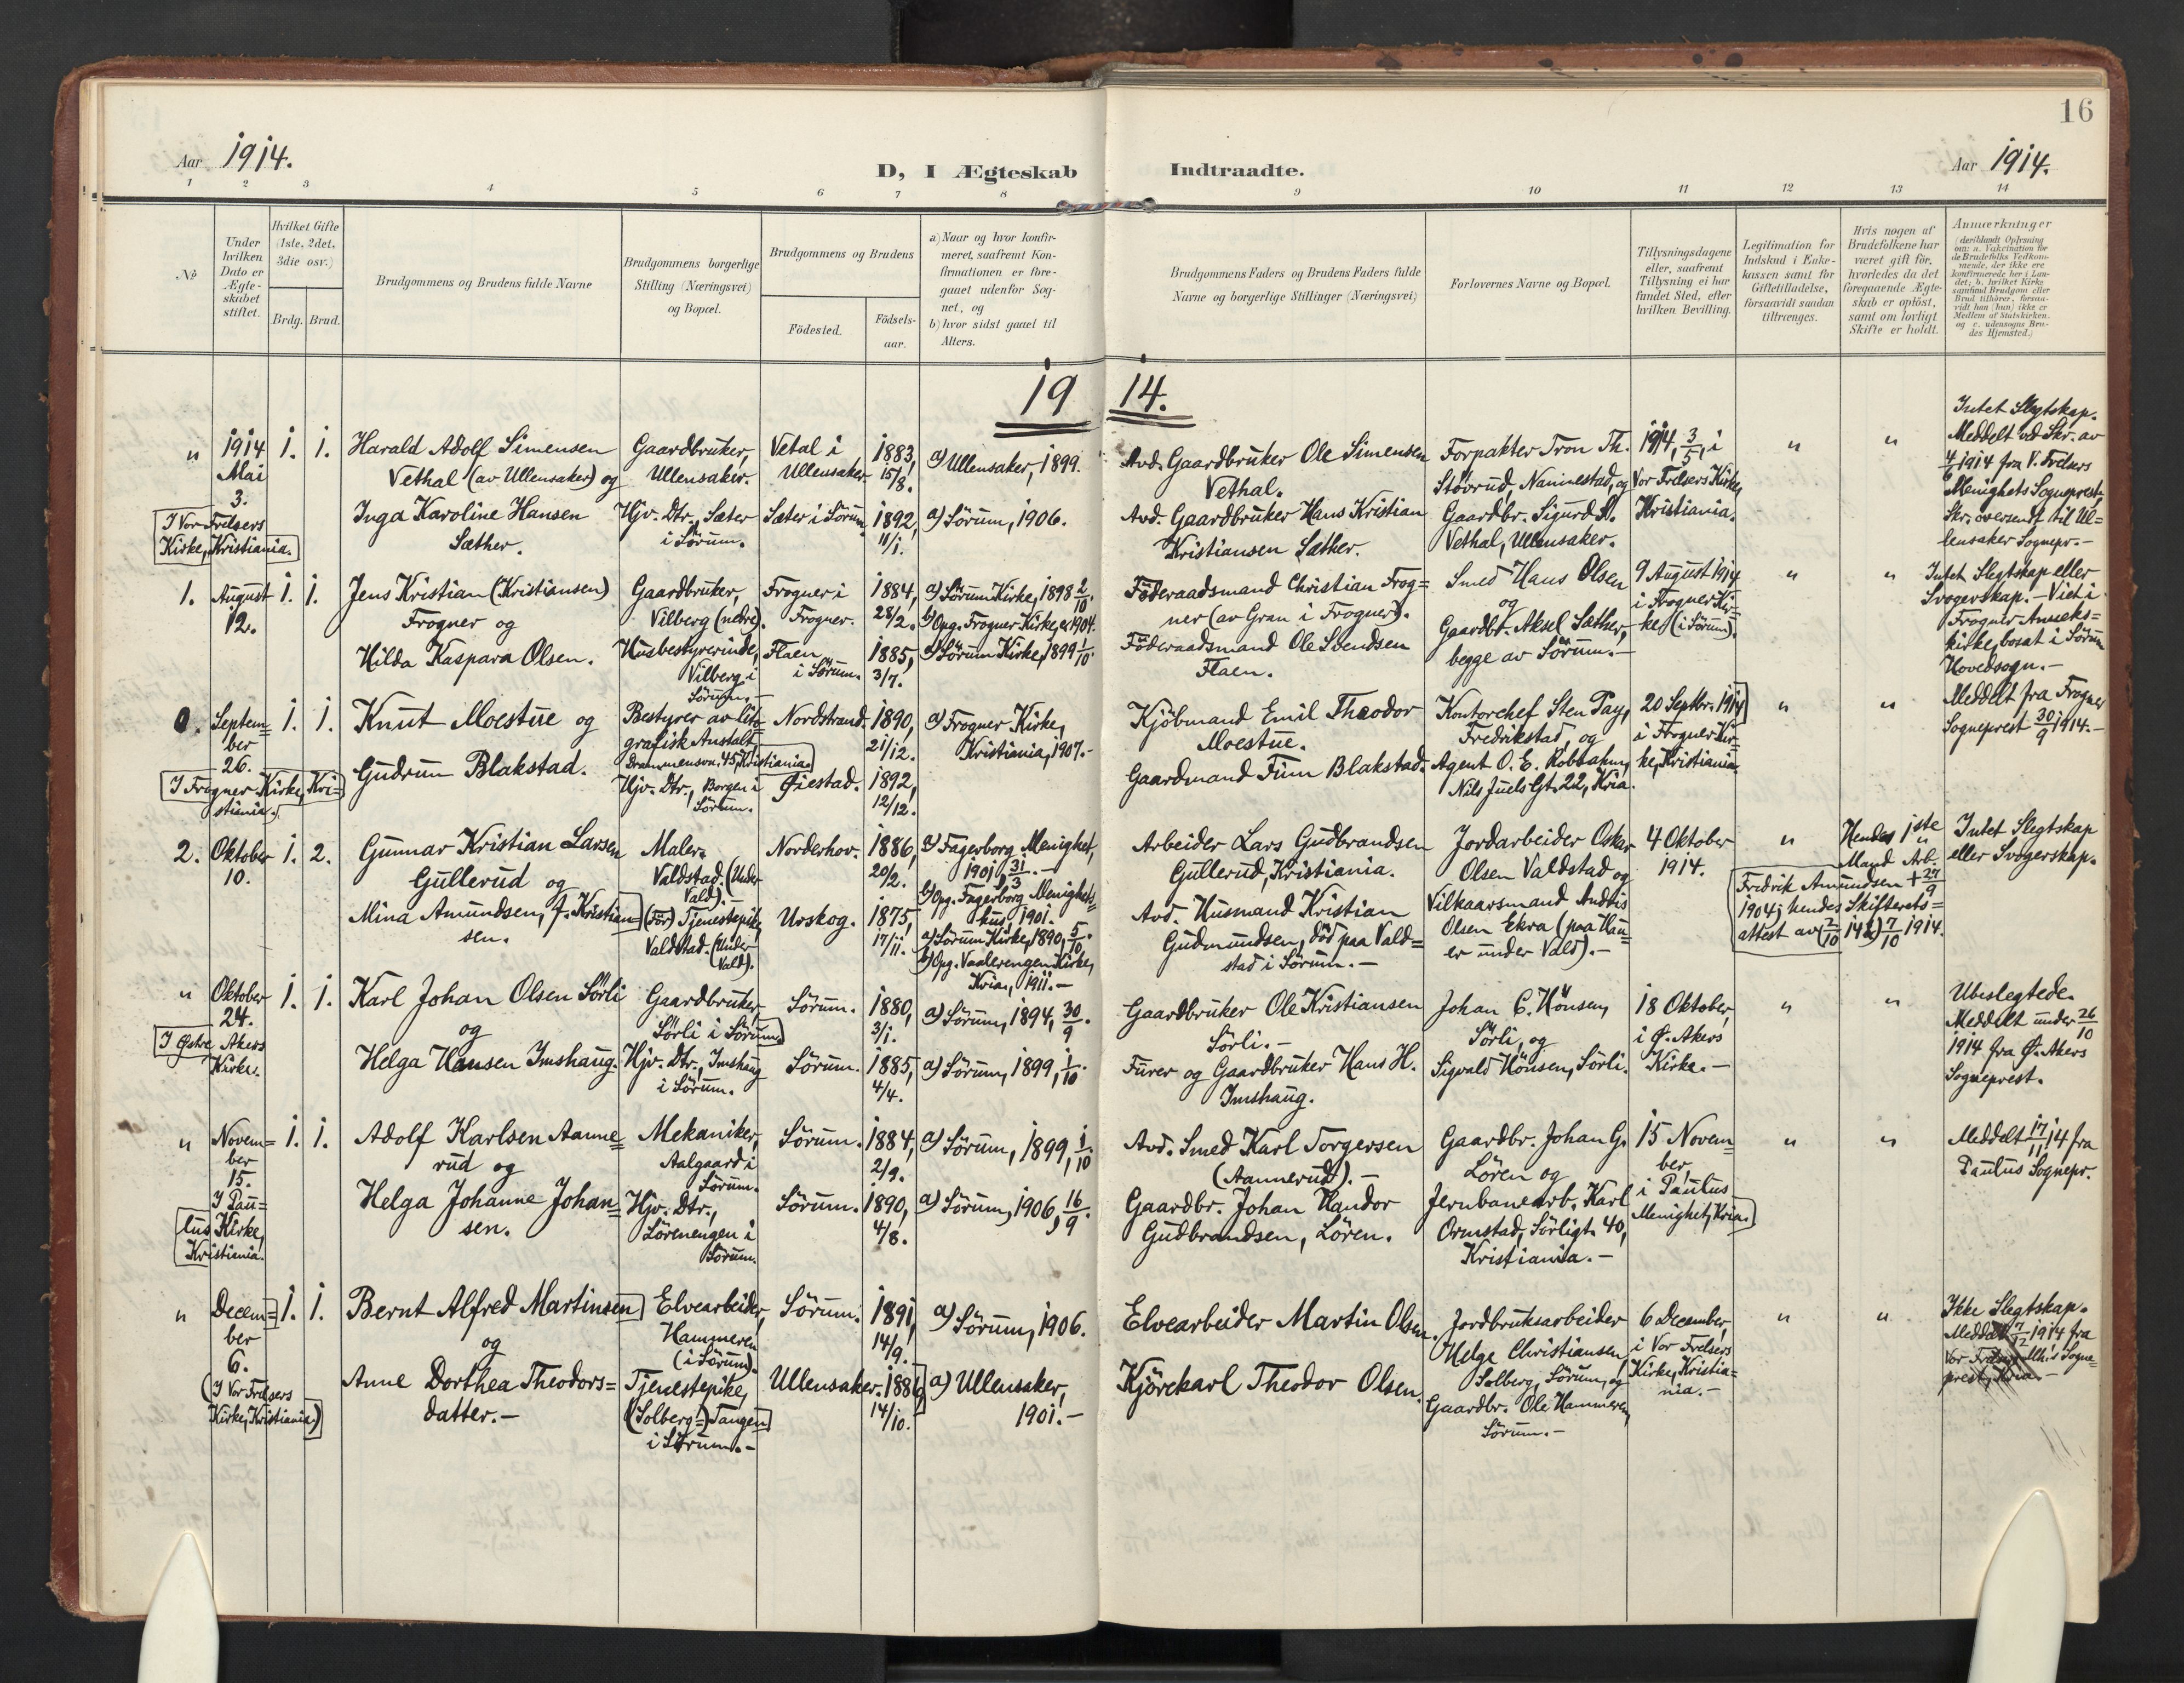 16
Aar 1914.
D, I Ægteskab Indtraadte.
Aar 1914.
1 2 3 4 5 6 7 8 9 10 11 12 13 14
No
Under hvilken Dato er Ægteskabet stiftet.
Hvilket Gifte (1ste, 2det, 3die osv.)
Brdg. Brud.
Brudgommens og Brudens fulde Navne
Brudgommens borgerlige Stilling (Næringsvei) og Bopæl.
Brudgommens og Brudens
Födested.
Födsels-aar.
a) Naar og hvor konfirmeret, saafremt Konfirmationen er foregaaet udenfor Sognet, og
b) hvor sidst gaaet til Alters.
Brudgommens Faders og Brudens Faders fulde Navne og borgerlige Stillinger (Næringsvei)
Forlovernes Navne og Bopæl.
Tillysningsdagene eller, saafremt Tillysning ei har fundet Sted, efter hvilken Bevilling.
Legitimation for Indskud i Enkekassen samt for Giftetilladelse, forsaavidt saadan tiltrænges.
Hvis nogen af Brudefolkene har været gift för, hvorledes da det foregaaende Ægteskab er oplöst, samt om lovligt Skifte er holdt.
Anmærkninger
(deriblandt Oplysning om: a. Vakcination for de Brudefolks Vedkommende, der ikke ere konfirmerede her i Landet; b. hvilket Kirkesamfund Brudgom eller Brud tilhörer, forsaavidt han (hun) ikke er Medlem af Statskirken, og c. udensogns Brudes Hjemsted.)
19 14.
" 1914 Mai 3. 1. 1.
I Vor Frelsers Kirke, Kristiania.
Harald Adolf Simensen Vethal (av Ullensaker) og
Gaardbruker, Ullensaker.
Vetal i Ullensaker.
1883, 15/8.
a) Ullensaker, 1899.
Avd. Gaardbruker Ole Simensen Vethal.
Forpakter Tron Th. Stövrud, Nannestad, og
1914, 3/5, i Vor Frelsers Kirke, Kristiania.
" "
Intet Slegtskap.
Meddelt ved Skr. av 4/6 1914 fra V. Frelsers Menighets Sogneprest.
Skr. oversendt til Ullensaker Sognepr.-
Inga Karoline Hansen Sæther.
Hjv. Dtr., Sæter i Sörum.
Sæter i Sörum.
1892, 11/1.
a) Sörum, 1906.
Avd. Gaardbruker Hans Kristian Kristiansen Sæther.
Gaardbr. Sigurd A. Vethal, Ullensaker.
1. August 12. 1. 1.
Jens Kristian (Kristiansen) Frogner og
Gaardbruker, Vilberg (nedre).
Frogner i Frogner.
1884, 28/2.
a) Sörum Kirke, 1898 2/10.
b) Opg. Frogner Kirke, ca 1904.
Föderaadsmand Christian Frogner (av Gran i Frogner).
Smed Hans Olsen og
Gaardbr. Aksel Sæther, begge av Sörum.-
9 August 1914 i Frogner Kirke (i Sörum).
" "
Intet Slegtskap eller Svogerskap.- Viet i Frogner Annekskirke, bosat i Sörum Hovedsogn.-
Hilda Kaspara Olsen.
Husbestyrerinde, Vilberg i Sörum.-
Flaen i Sörum.
1885, 3/7.
a) Sörum Kirke, 1899 1/10.
Föderaadsmand Ole Svendsen Flaen.
0. September 26. 1. 1.
I Frogner Kirke, Kristiania.
Knut Moestue og
Bestyrer av litografisk Anstalt, Drammensvn. 45, Kristiania.
Nordstrand.
1890, 21/12.
a) Frogner Kirke, Kristiania, 1907.-
Kjöbmand Emil Theodor Moestue.
Kontorchef Sten Pay, Fredrikstad, og
20 Septbr. 1914 i Frogner Kirke, Kristiania.
" "
Meddelt fra Frogner Sogneprest 30/9 1914.-
Gudrun Blakstad.
Hjv. Dtr., Borgen i Sörum.
Øiestad.
1892, 12/12.
Gaardmand Finn Blakstad.
Agent O. E. Robbahm, Nils Juels Gt. 22, Kria.
2. Oktober 10. 1. 2.
Gunnar Kristian Larsen Gullerud og
Maler. Valdstad. (Under Vald).-
Norderhov.
1886, 20/2.
a) Fagerborg Menighet, 1901, 31/3.-
b) Opg. Fagerborg Menighetshus, 1901.
Arbeider Lars Gudbrandsen Gullerud, Kristiania.
Jordarbeider Oskar Olsen Valdstad og
4 Oktober 1914.
"
Hendes 1ste Mand Arb. Fredrik Amundsen + 27/9 1904; hendes Skifterets-attest av (2/10 14 &) 7/10 1914.
Intet Slegtskap eller Svogerskap.
Mina Amundsen, f. Kristiansen.
(För) Tjenestepike, Valdstad. (Under Vald).
Urskog.
1875, 17/11.
a) Sörum Kirke, 1890, 5/10.
b) Opg. Vaalerengen Kirke, Kria, 1911.-
Avd. Husmand Kristian Gudmundsen, död paa Valdstad i Sörum.-
Vilkaarsmand Andtis Olsen Ekra (paa Hauer under Vald).-
" Oktober 24. 1. 1.
I Østre Akers Kirke.
Karl Johan Olsen Sörli og
Gaardbruker, Sörli i Sörum
Sörum.
1880, 3/1.
a) Sörum, 1894, 30/9.
Gaardbruker Ole Kristiansen Sörli.-
Johan C. Hönsen, Sörli, og
18 Oktober, i Ø. Akers Kirke.-
" "
Ubeslegtede.
Meddelt under 26/10 1914 fra Ø. Akers Sogneprest.
Helga Hansen Imshaug.
Hjv. Dtr., Imshaug i Sörum.
Sörum.
1885, 4/4.
a) Sörum, 1899, 1/10.
Furer og Gaardbruker Hans H. Imshaug.
Sigvald Hönsen, Sörli.
" November 15. 1. 1.
I Paulus Kirke, Kristiania.
Adolf Karlsen Aannerud og
Mekaniker, Aalgaard i Sörum.
Sörum.
1884, 2/9.
a) Sörum, 1899, 1/10
Avd. Smed Karl Torgersen (Aannerud).-
Gaardbr. Johan G. Lören og
15 November, i Paulus Menighet, Kria.
" "
Meddelt 17/11 14 fra Paulus Sognepr.
Helga Johanne Johansen.
Hjv. Dtr., Lörenengen i Sörum.
Sörum.
1890, 4/8.
a) Sörum, 1906, 16/9.
Gaardbr. Johan Handor Gudbrandsen, Lören.
Jernbanearb. Karl Ormstad, Sörligt. 40, Kristiania.-
" December 6. 1. 1.
(I Vor Frelsers Kirke, Kristiania.)
Bernt Alfred Martinsen og
Elvearbeider, Hammeren (i Sörum).
Sörum.
1891, 14/9.
a) Sörum, 1906.
Elvearbeider Martin Olsen.
Jordbruksarbeider Helge Christiansen Solberg, Sörum, og
6 December, i Vor Frelsers Kirke, Kristiania.-
" "
Ikke Slegtskap.
Meddelt 7/12 1914 fra Vor Frelsers Mh's Sogneprest, Kria.-
Anne Dorthea Theodorsdatter.-
Tjenestepike, (Solberg-) Tangen i Sörum.-
Ullensaker.
1886, 14/10.
a) Ullensaker, 1901.-
Kjörekarl Theodor Olsen.
Gaardbr. Ole Hammeren, Sörum.-